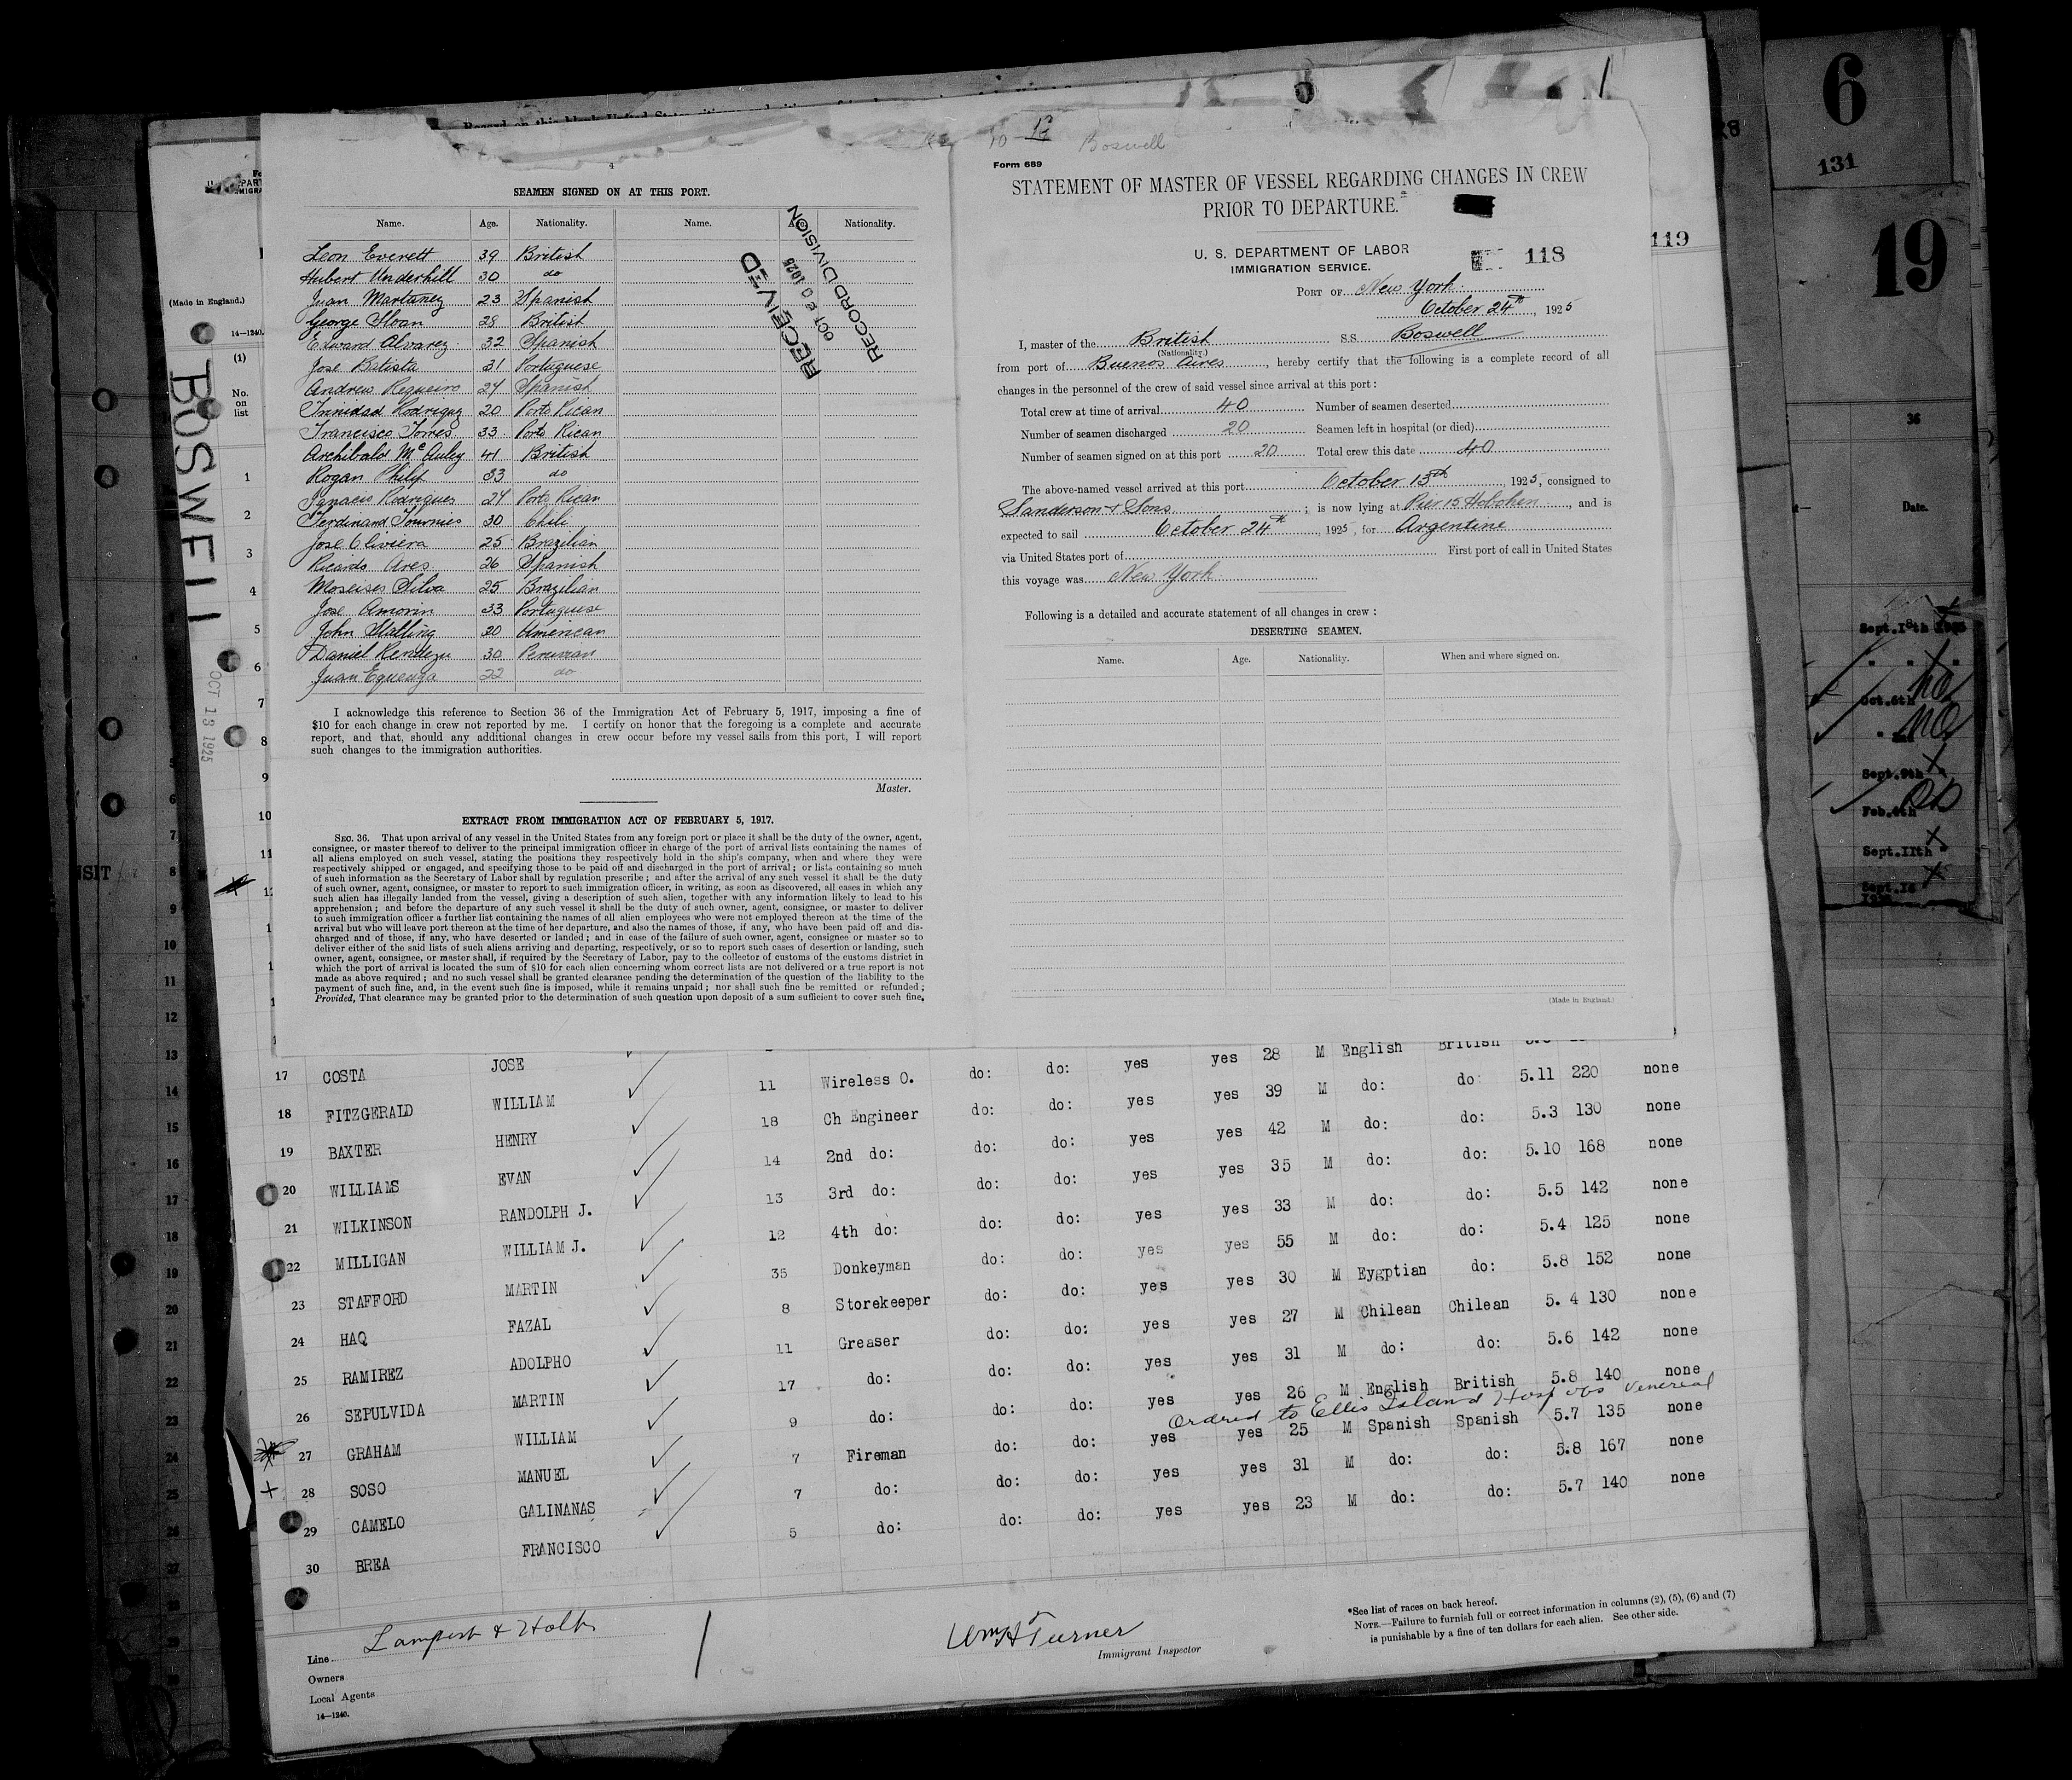 4
SEAMEN SIGNED ON AT THIS PORT.
Name. Age. Nationality. Name. Nationality.
Leon Everett 39 British
Hubert Underhill 30 do
Juan Martinez 23 Spanish
George Sloan 28 British
Edward Alvarez 32 Spanish
Jose Batista 31 Portuguese
Andrew Regueiro 24 Spanish
Trinidad Rodriguez 20 Porto Rican
Francisco Torres 33 Porto Rican
Archibald McAuley 41 British
Rogan Philip 33 do
Ignacio Rodriguez 24 Porto Rican
Ferdinand 30 Chili
Jose Oliviera 25 Brazilian
Ricardo Ares 26 Spanish
Moseises Silva 25 Brazilian
Jose Amorin 33 Portuguese
John Stalling 20 American
Daniel 30 Peruvian
Juan 22 do
RECEIVED
OCT 1925
RECORD DIVISION
I acknowledge this reference to Section 36 of the Immigration Act of February 5, 1917, imposing a fine of
$10 for each change in crew not reported by me. I certify on honor that the foregoing is a complete and accurate
report, and that, should any additional changes in crew occur before my vessel sails from this port, I will report
such changes to the immigration authorities.
Master.
EXTRACT FROM IMMIGRATION ACT OF FEBRUARY 5, 1917.
SEC. 36. That upon arrival of any vessel in the United States from any foreign port or place it shall be the duty of the owner, agent,
consignee, or master thereof to deliver to the principal immigration officer in charge of the port of arrival lists containing the names of
all aliens employed on such vessel, stating the positions they respectively hold in the ship's company, when and where they were
respectively shipped or engaged, and specifying those to be paid off and discharged in the port of arrival; or lists containing so much
of such information as the Secretary of Labor shall by regulation prescribe; and after the arrival of any such vessel it shall be the duty
of such owner, agent, consignee, or master to report to such immigration officer, in writing, as soon as discovered, all cases in which any
such alien has illegally landed from the vessel, giving a description of such alien, together with any information likely to lead to his
apprehension; and before the departure of any such vessel it shall be the duty of such owner, agent, consignee, or master to deliver
to such immigration officer a further list containing the names of all alien employees who were not employed thereon at the time of the
arrival but who will leave port thereon at the time of her departure, and also the names of those, if any, who have been paid off and dis-
charged and of those, if any, who have deserted or landed; and in case of the failure of such owner, agent, consignee or master so to
deliver either of the said lists of such aliens arriving and departing, respectively, or so to report such cases of desertion or landing, such
owner, agent, consignee, or master shall, if required by the Secretary of Labor, pay to the collector of customs of the customs district in
which the port of arrival is located the sum of $10 for each alien concerning whom correct lists are not delivered or a true report is not
made as above required; and no such vessel shall be granted clearance pending the determination of the question of the liability to the
payment of such fine, and, in the event such fine is imposed, while it remains unpaid; nor shall such fine be remitted or refunded;
Provided, That clearance may be granted prior to the determination of such question upon deposit of a sum sufficient to cover such fine.
Boswell
Form 689
STATEMENT OF MASTER OF VESSEL REGARDING CHANGES IN CREW
PRIOR TO DEPARTURE.
U. S. DEPARTMENT OF LABOR
IMMIGRATION SERVICE.
118
PORT OF New York
October 24th, 1925
I, master of the British S.S. Boswell
(Nationality.)
from port of Buenos Aires, hereby certify that the following is a complete record of all
changes in the personnel of the crew of said vessel since arrival at this port:
Total crew at time of arrival 40 Number of seamen deserted
Number of seamen discharged 20 Seamen left in hospital (or died)
Number of seamen signed on at this port 20 Total crew this date 40
The above-named vessel arrived at this port October 13th, 1925, consigned to
Sanderson & Sons; is now lying at Pier 15 Hoboken, and is
expected to sail October 24th, 1925, for Argentine
via United States port of First port of call in United States
this voyage was New York.
Following is a detailed and accurate statement of all changes in crew:
DESERTING SEAMEN.
Name. Age. Nationality. When and where signed on.
(Made in England.)
(Made in England.)
14—1240.
(1)
No.
on
list
BOSWELL
OCT 13 1925
1
2
3
4
5
6
7
8
9
10
11
17 COSTA JOSE 11 Wireless O. do: do: yes yes 28 M English British
18 FITZGERALD WILLIAM 18 Ch Engineer do: do: yes yes 39 M do: do: 5.11 220 none
19 BAXTER HENRY 14 2nd do: do: do: yes yes 42 M do: do: 5.3 130 none
20 WILLIAMS EVAN 13 3rd do: do: do: yes yes 35 M do: do: 5.10 168 none
21 WILKINSON RANDOLPH J. 12 4th do: do: do: yes yes 33 M do: do: 5.5 142 none
22 MILLIGAN WILLIAM J. 35 Donkeyman do: do: yes yes 55 M do: do: 5.4 125 none
23 STAFFORD MARTIN 8 Storekeeper do: do: yes yes 30 M Eygptian do: 5.8 152 none
24 HAQ FAZAL 11 Greaser do: do: yes yes 27 M Chilean Chilean 5.4 130 none
25 RAMIREZ ADOLPHO 17 do: do: do: yes yes 31 M do: do: 5.6 142 none
26 SEPULVIDA MARTIN 9 do: do: do: yes yes 26 M English British 5.8 140 none
Ordred to Ellis Island Hosp obs venereal
27 GRAHAM WILLIAM 7 Fireman do: do: yes yes 25 M Spanish Spanish 5.7 135 none
28 SOSO MANUEL 7 do: do: do: yes yes 31 M do: do: 5.8 167 none
29 CAMELO GALINANAS 5 do: do: do: yes yes 23 M do: do: 5.7 140 none
30 BREA FRANCISCO
Line Lamport & Holt
Owners
Local Agents
14—1240.
Wm H Turner
Immigrant Inspector
*See list of races on back hereof.
NOTE.—Failure to furnish full or correct information in columns (2), (5), (6) and (7)
is punishable by a fine of ten dollars for each alien. See other side.
119
6
131
19
36
Date.
Oct.6th
Sept.9th
Feb.4th
Sept.11th